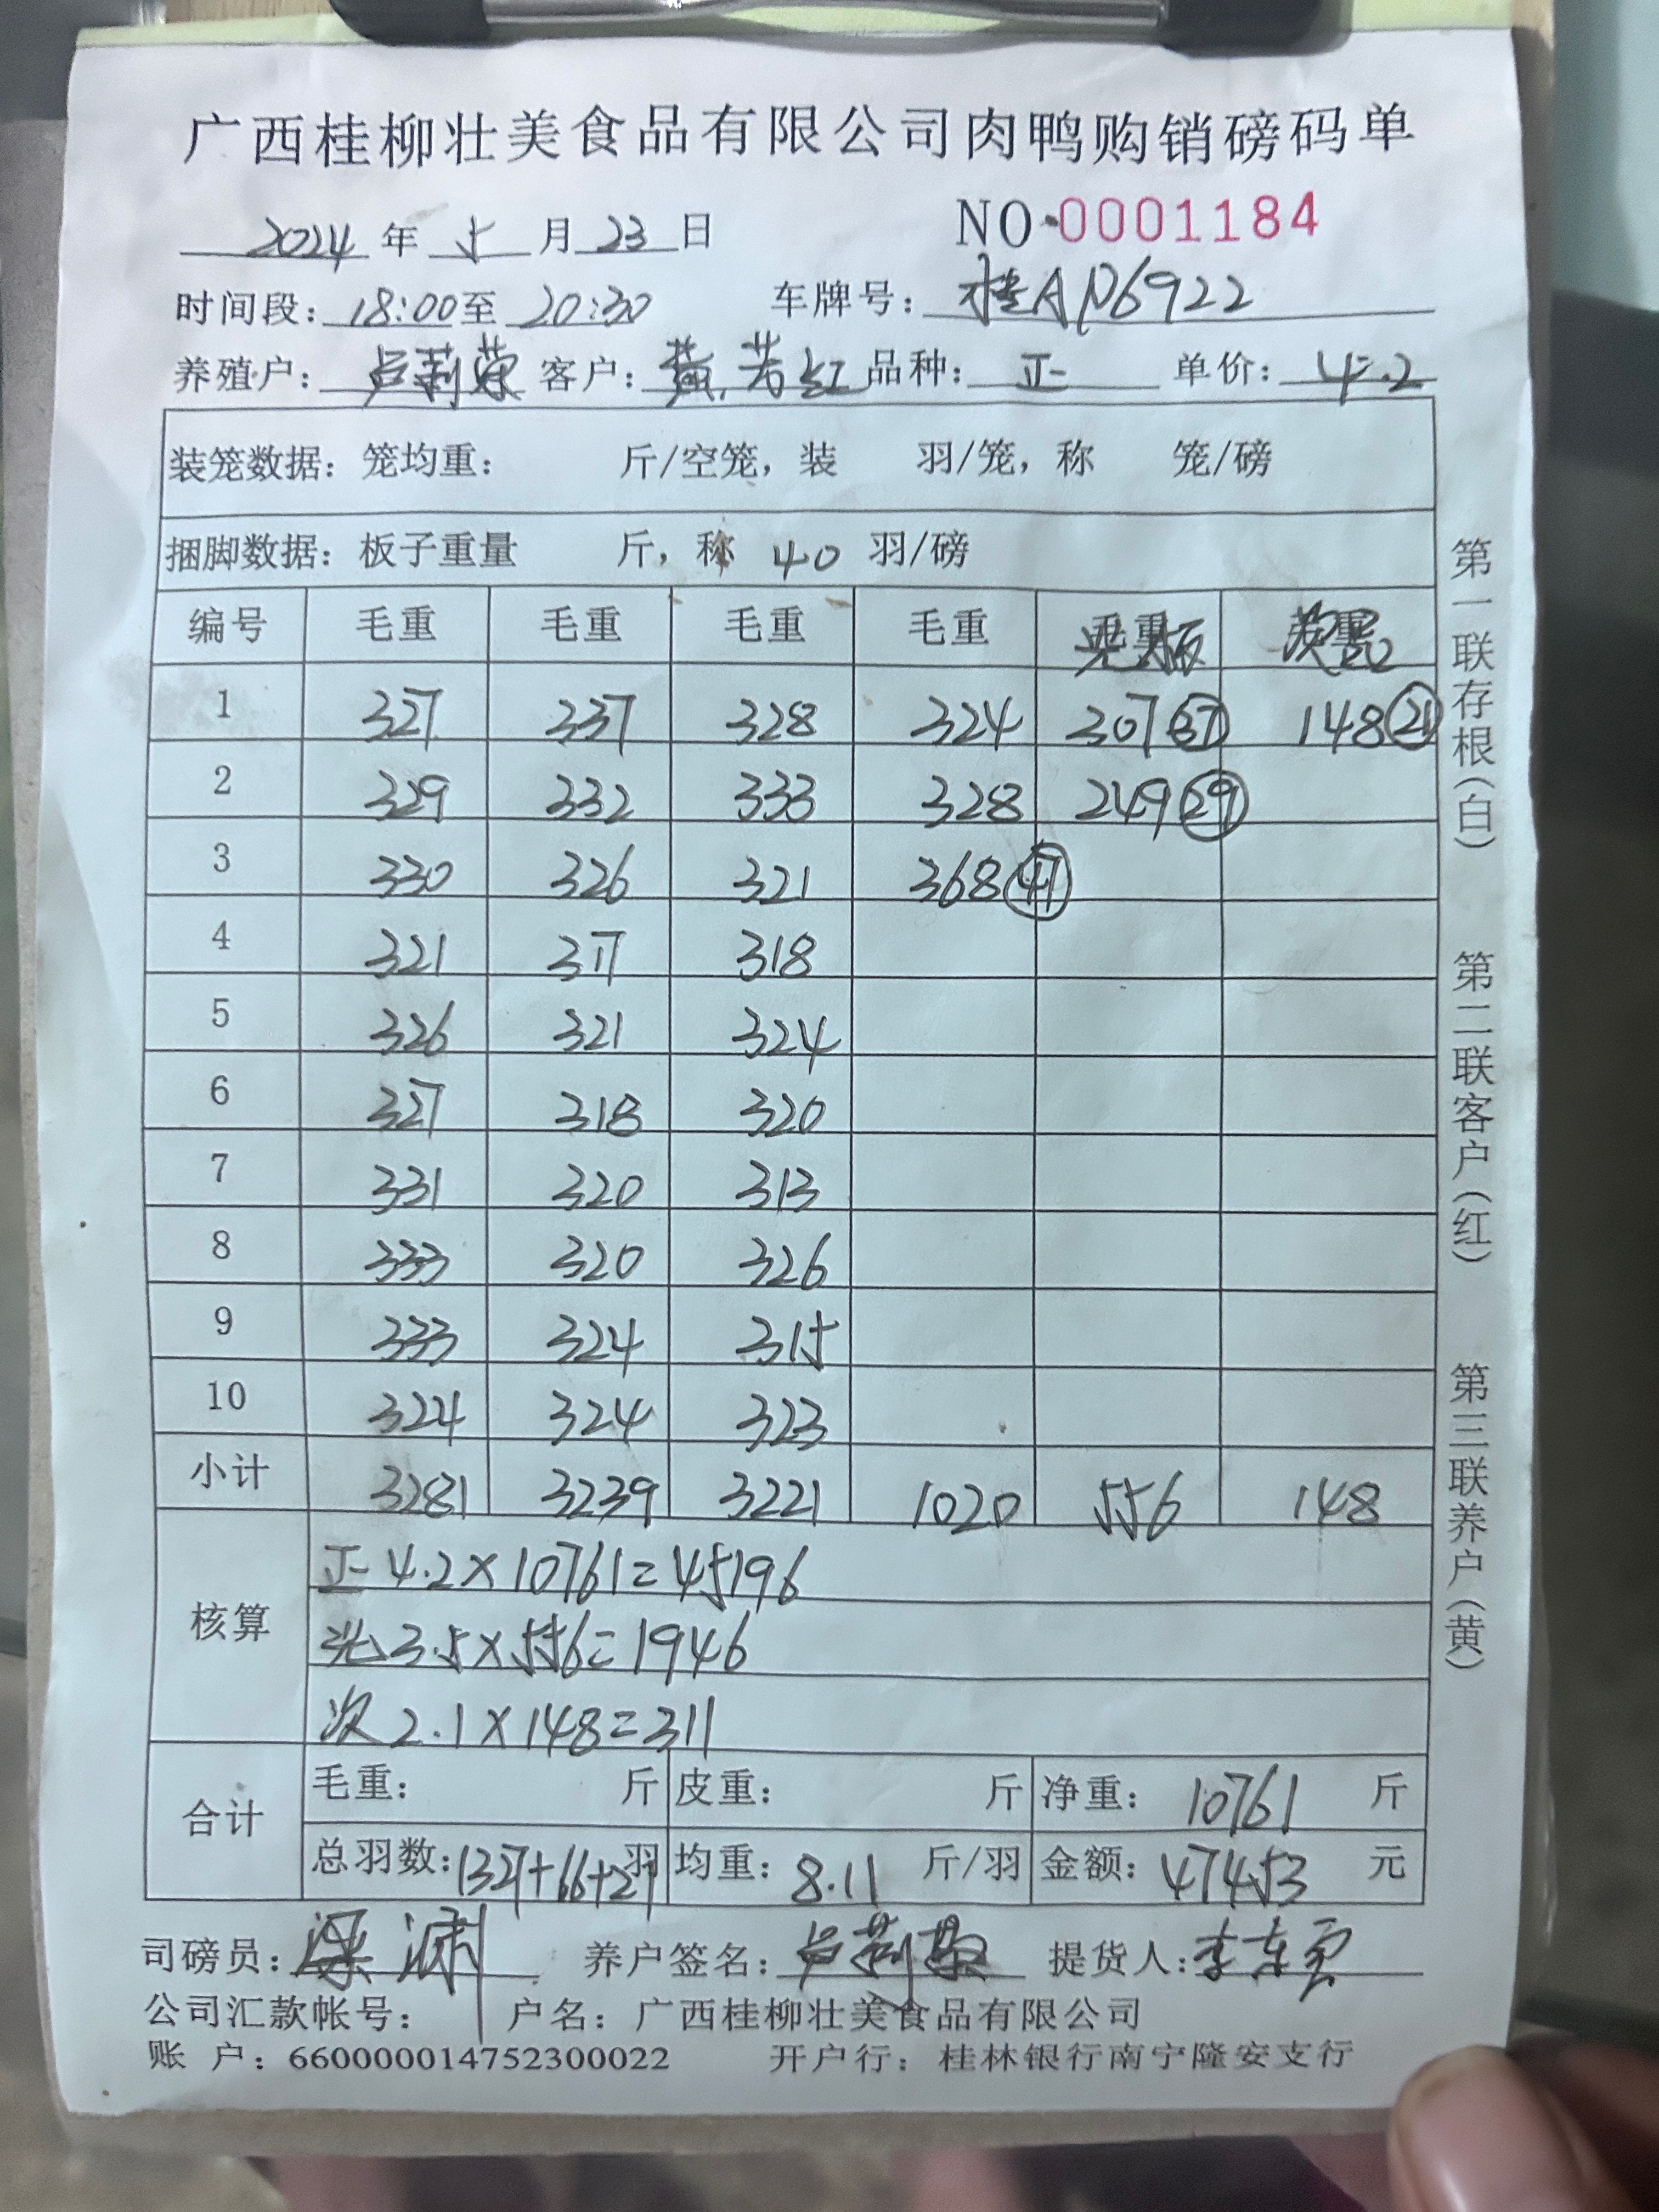 广西桂柳壮美食品有限公司肉鸭购销磅码单
2024年5月23日 NO.0001184
时间段：18:00至20:30 车牌号：桂AD6922
养殖户：卢莉荣 客户：黄芳红 品种：正 单价：4.2
装笼数据：笼均重： 斤/空笼，装 羽/笼，称 笼/磅
捆脚数据：板子重量 斤，称 40 羽/磅
编号 毛重 毛重 毛重 毛重
1 327 337 328 324 307 37 148 21
2 329 332 333 328 249 29
3 330 326 321 368
4 321 317 318
5 326 321 324
6 327 318 320
7 331 320 313
8 333 320 326
9 333 324 315
10 324 324 323
小计 3281 3239 3221 1020 556 148
核算
正4.2×10761=45196
光3.5×556=1946
次2.1×148=311
合计
毛重： 斤 皮重： 斤 净重：10761 斤
总羽数：1327+66+21羽 均重：8.11 斤/羽 金额：47453 元
司磅员：梁 养户签名：卢莉荣 提货人：李东
公司汇款帐号： 户名：广西桂柳壮美食品有限公司
账 户：660000014752300022 开户行：桂林银行南宁隆安支行
第一联存根（白） 第二联客户（红） 第三联养户（黄）